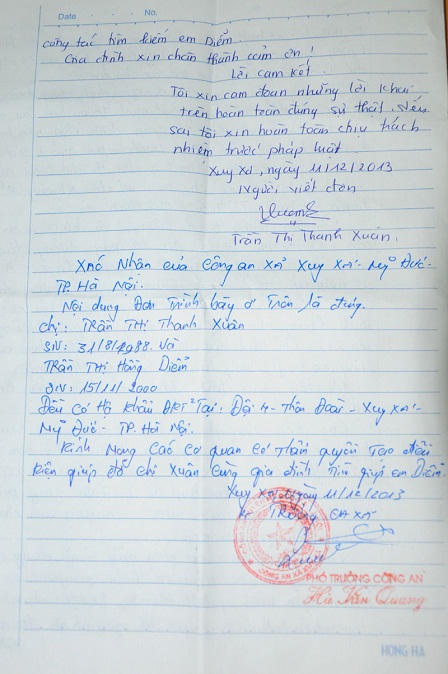 Date No.
công tác tìm kiếm em Diễm.
Gia đình xin chân thành cảm ơn!
Lời cam kết.
Tôi xin cam đoan những lời khai
trên hoàn toàn đúng sự thật, nếu
sai tôi xin hoàn toàn chịu trách
nhiệm trước pháp luật
Xuy Xá, ngày 11/12/2013
Người viết đơn
Trần Thị Thanh Xuân.
Xác Nhận của Công an Xã Xuy Xá - Mỹ Đức -
TP. Hà Nội.
Nội dung Đơn Trình bày ở Trên là đúng.
chị: TRần THị Thanh Xuân
SN: 31/8/1988. Và
TRần THị Hồng Diễm
SN: 15/11/2000
Đều có Hộ khẩu ĐKT² Tại: Đội 4 - Thôn Đoài - Xuy Xá -
Mỹ Đức - TP. Hà Nội.
Kính Mong các cơ quan có Thẩm quyền Tạo điều
kiện giúp đỡ chị Xuân cùng gia đình tìm giúp em Diễm
Xuy Xá, ngày 11/12/2013
TRưởng CA Xã
PHÓ TRƯỞNG CÔNG AN
Hà Văn Quang
HONG HA